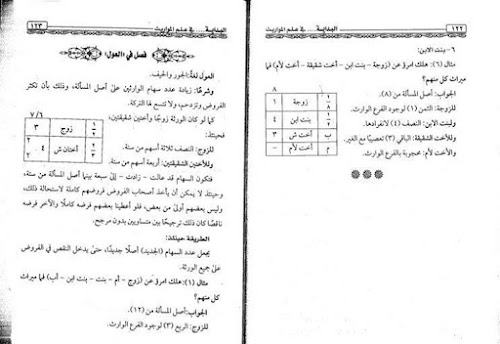 ١٢٢ البداية .... في علم المواريث
٦- بنت الابن:
مثال (٦): هلك امرؤ عن (زوجة - بنت ابن - أخت شقيقة - أخت لأم) فما
ميراث كل منهم؟
الجواب: أصل المسألة من (٨).
للزوجة: الثمن (١) لوجود الفرع الوارث.
ولبنت الابن: النصف (٤) لانفرادها.
وللأخت الشقيقة: الباقي (٣) تعصيبًا مع الغير.
والأخت لأم: محجوبة بالفرع الوارث.
٨
١/٨ زوجة ١
١/٢ بنت ابن ٤
ب أخت ش ٣
م أخت لأم -
البداية .... في علم المواريث ١٢٣
فصل في «العول»
العول لغة: الجور والحيف.
وشرعًا: زيادة عدد سهام الوارثين على أصل المسألة، وذلك بأن تكثر
الفروض وتزدحم ولا تتسع لها التركة.
كما لو كان الورثة زوجًا وأختين شقيقتين،
فحينئذ:
للزوج: النصف ثلاثة أسهم من ستة.
وللأختين الشقيقتين: أربعة أسهم من ستة.
٧/٦
١/٢ زوج ٣
٢/٣ أختان ش ٤
فتكون السهام قد عالت - زادت - إلى سبعة بينما أصل المسألة من ستة،
وحينئذ لا يمكن أن يأخذ أصحاب الفروض فروضهم كاملة لاستحالة ذلك،
وليس بعضهم أولى من بعض، فلو أعطينا بعضهم فرضه كاملًا والآخر فرضه
ناقصًا كان ذلك ترجيحًا بين متساويين بدون مرجح.
الطريقة حينئذ:
يجعل عدد السهام (الجديد) أصلًا جديدًا، حتى يدخل النقص في الفروض
على جميع الورثة.
مثال (١): هلك امرؤ عن (زوج - أم - بنت - بنت ابن - أب) فما ميراث
كل منهم؟
الجواب: أصل المسألة من (١٢).
للزوج: الربع (٣) لوجود الفرع الوارث.